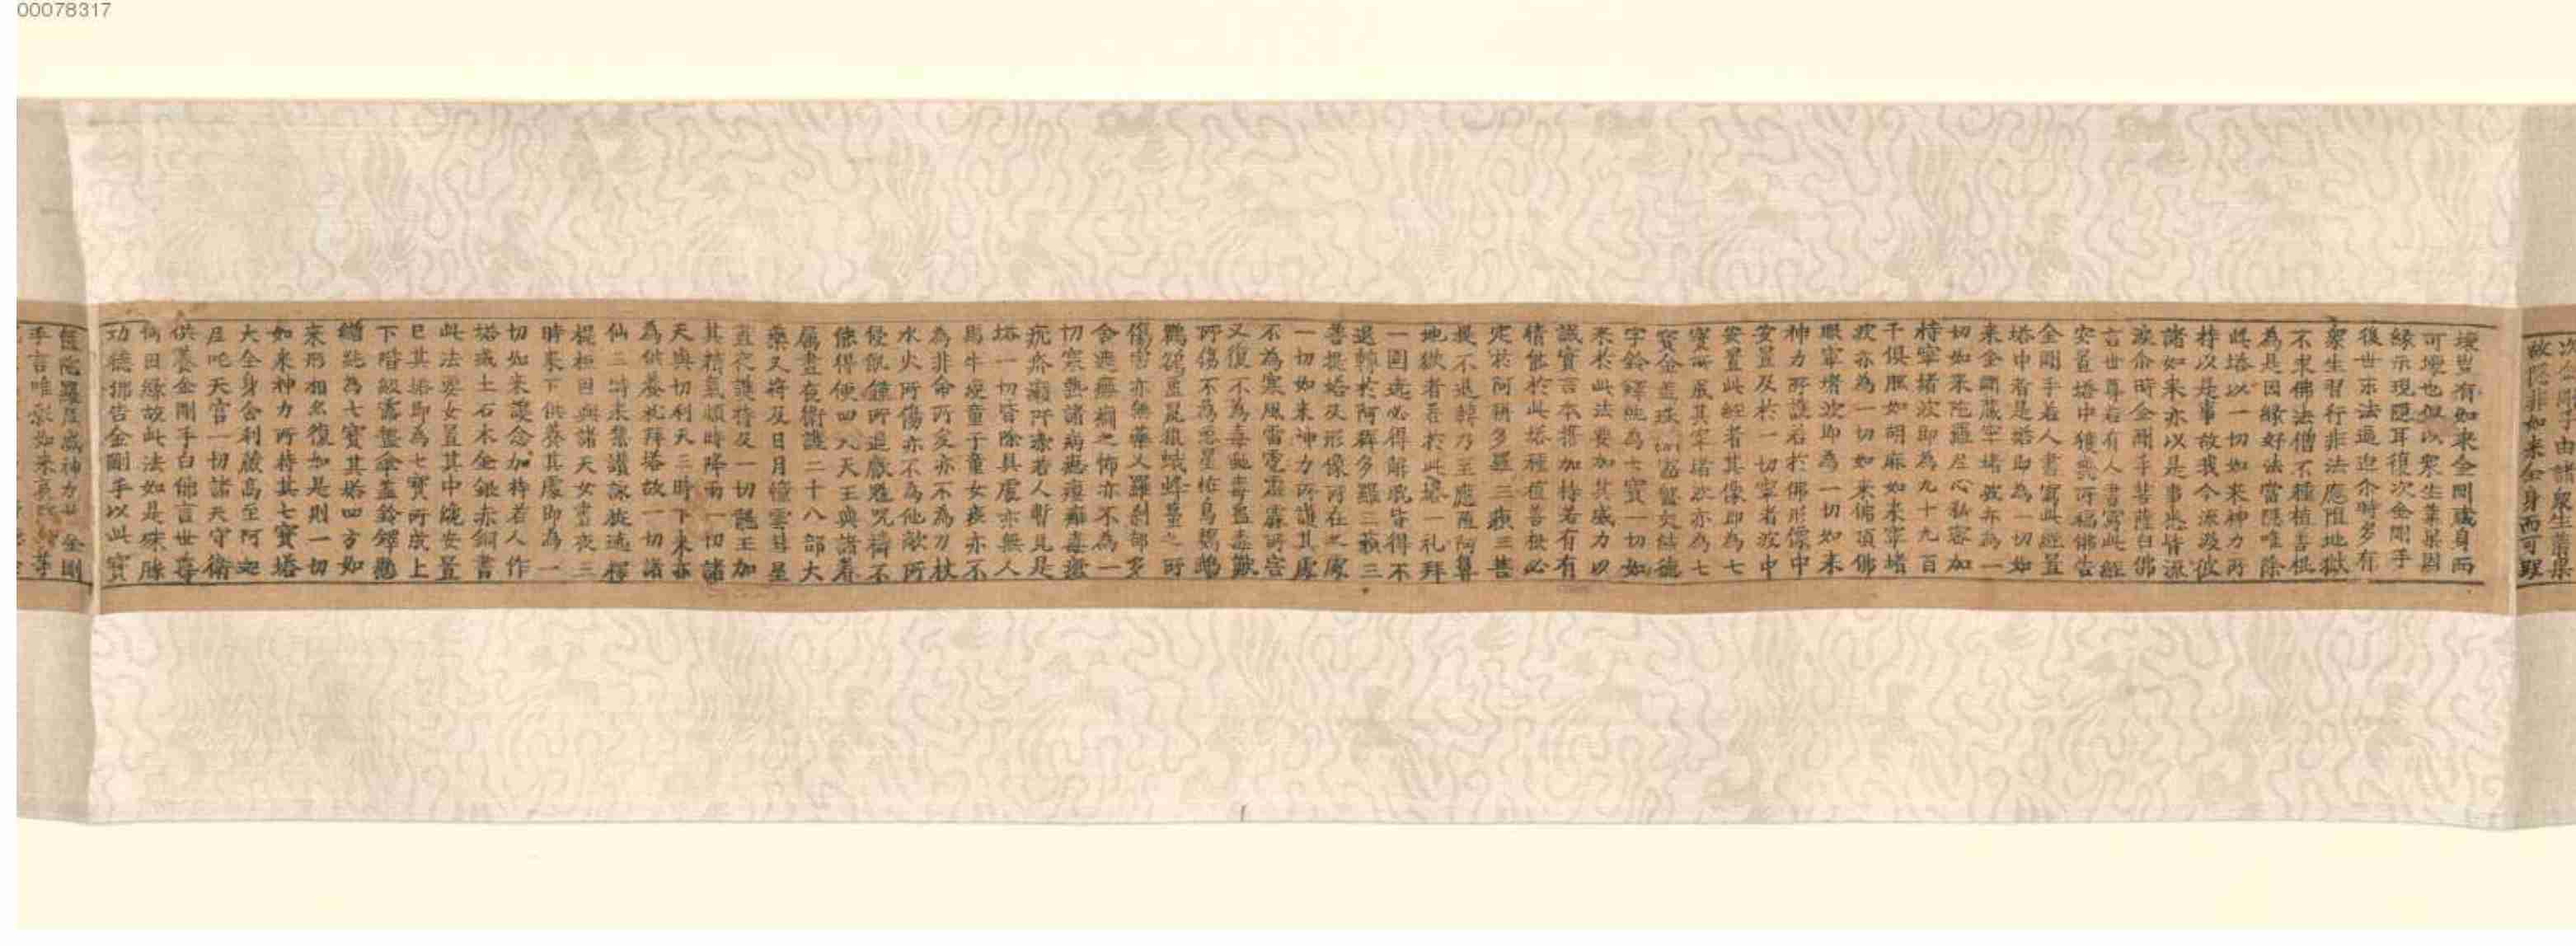 00078317
次金剛手由諸衆生業果
故隱非如来全身而可毀
壞豈有如来金剛藏身而
可壞也但以衆生業果因
緣示現隱耳復次金剛手
後世末法逼迫尒時多有
衆生習行非法應墮地獄
不求佛法僧不種植善根
為是因緣好法當隱唯除
此塔以一切如来神力所
持以是事故我今流淚彼
諸如来亦以是事悉皆流
淚尒時金剛手菩薩白佛
言世尊若有人書寫此經
安置塔中獲幾所福佛告
金剛手若人書寫此經置
塔中者是塔即為一切如
来金剛藏窣堵波亦為一
切如来陀羅尼心秘密加
持窣堵波即為九十九百
千俱胝如胡麻如来窣堵
波亦為一切如来佛頂佛
眼窣堵波即為一切如来
神力所護若於佛形像中
安置及於一切窣堵波中
安置此經者其像即為七
寳所成其窣堵波亦為七
寳傘盖珠網露盤交結德
字鈴鐸純為七寳一切如
来於此法要加其威力以
誠實言本誓加持若有有
情能於此塔種植善根必
定於阿耨多羅三藐三菩
提不退轉乃至應墮阿鼻
地獄者若於此塔一礼拜
一圍遶必得解脫皆得不
退轉於阿耨多羅三藐三
菩提塔及形像所在之處
一切如来神力所護其處
不為寒風雷電霹靂所害
又復不為毒蛇毒蟲毒獸
所傷不為惡星怪鳥鸚鵡
鸜鵒蟲鼠狼蛾蜂蠆之所
傷害亦無藥叉羅剎部多
舍遮癲癇之怖亦不為一
切寒熱諸病癧瘻癰毒瘡
疣疥癩所染若人暫見是
塔一切皆除其處亦無人
馬牛疫童子童女疫亦不
為非命所夭亦不為刀杖
水火所傷亦不為他敵所
侵飢饉所逼厭魅呪禱不
能得便四大天王與諸眷
屬晝夜衛護二十八部大
藥叉將及日月幢雲彗星
晝夜護持及一切龍王加
其精氣順時降雨一切諸
天與忉利天三時下来亦
為供養礼拜塔故一切諸
仙三時来集讚詠旋遶釋
提桓因與諸天女晝夜三
時来下供養其處即為一
切如来護念加持若人作
塔或土石木金銀赤銅書
此法要安置其中纔安置
已其塔即為七寳所成上
下階級露盤傘蓋鈴鐸懸
繒純為七寳其塔四方如
来形相亦復如是則一切
如来神力所持其七寳塔
大全身舍利藏高至阿迦
尼吒天宮一切諸天守衛
供養金剛手白佛言世尊
何因緣故此法如是殊勝
功德佛告金剛手以此寳
篋陀羅尼威神力故金剛
手言唯願如来哀愍等